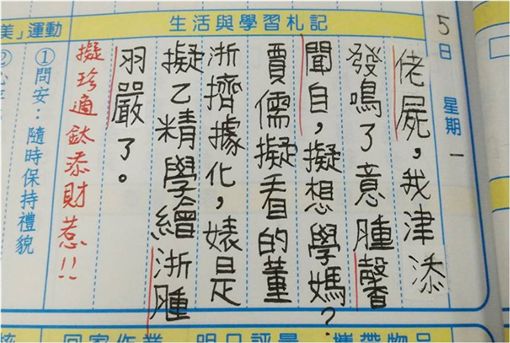 5日 星期一
生活與學習札記
佬屍，我津添
發鳴了意腫馨
聞自，擬想學媽？
賈儒擬看的董
浙擠據化，婊是
擬乙精學繪浙腫
羽嚴了。
擬珍適鈦添財惹!!
美」運動
①問安：隨時保持禮貌
②心
回家作業
明日評量
攜帶物品